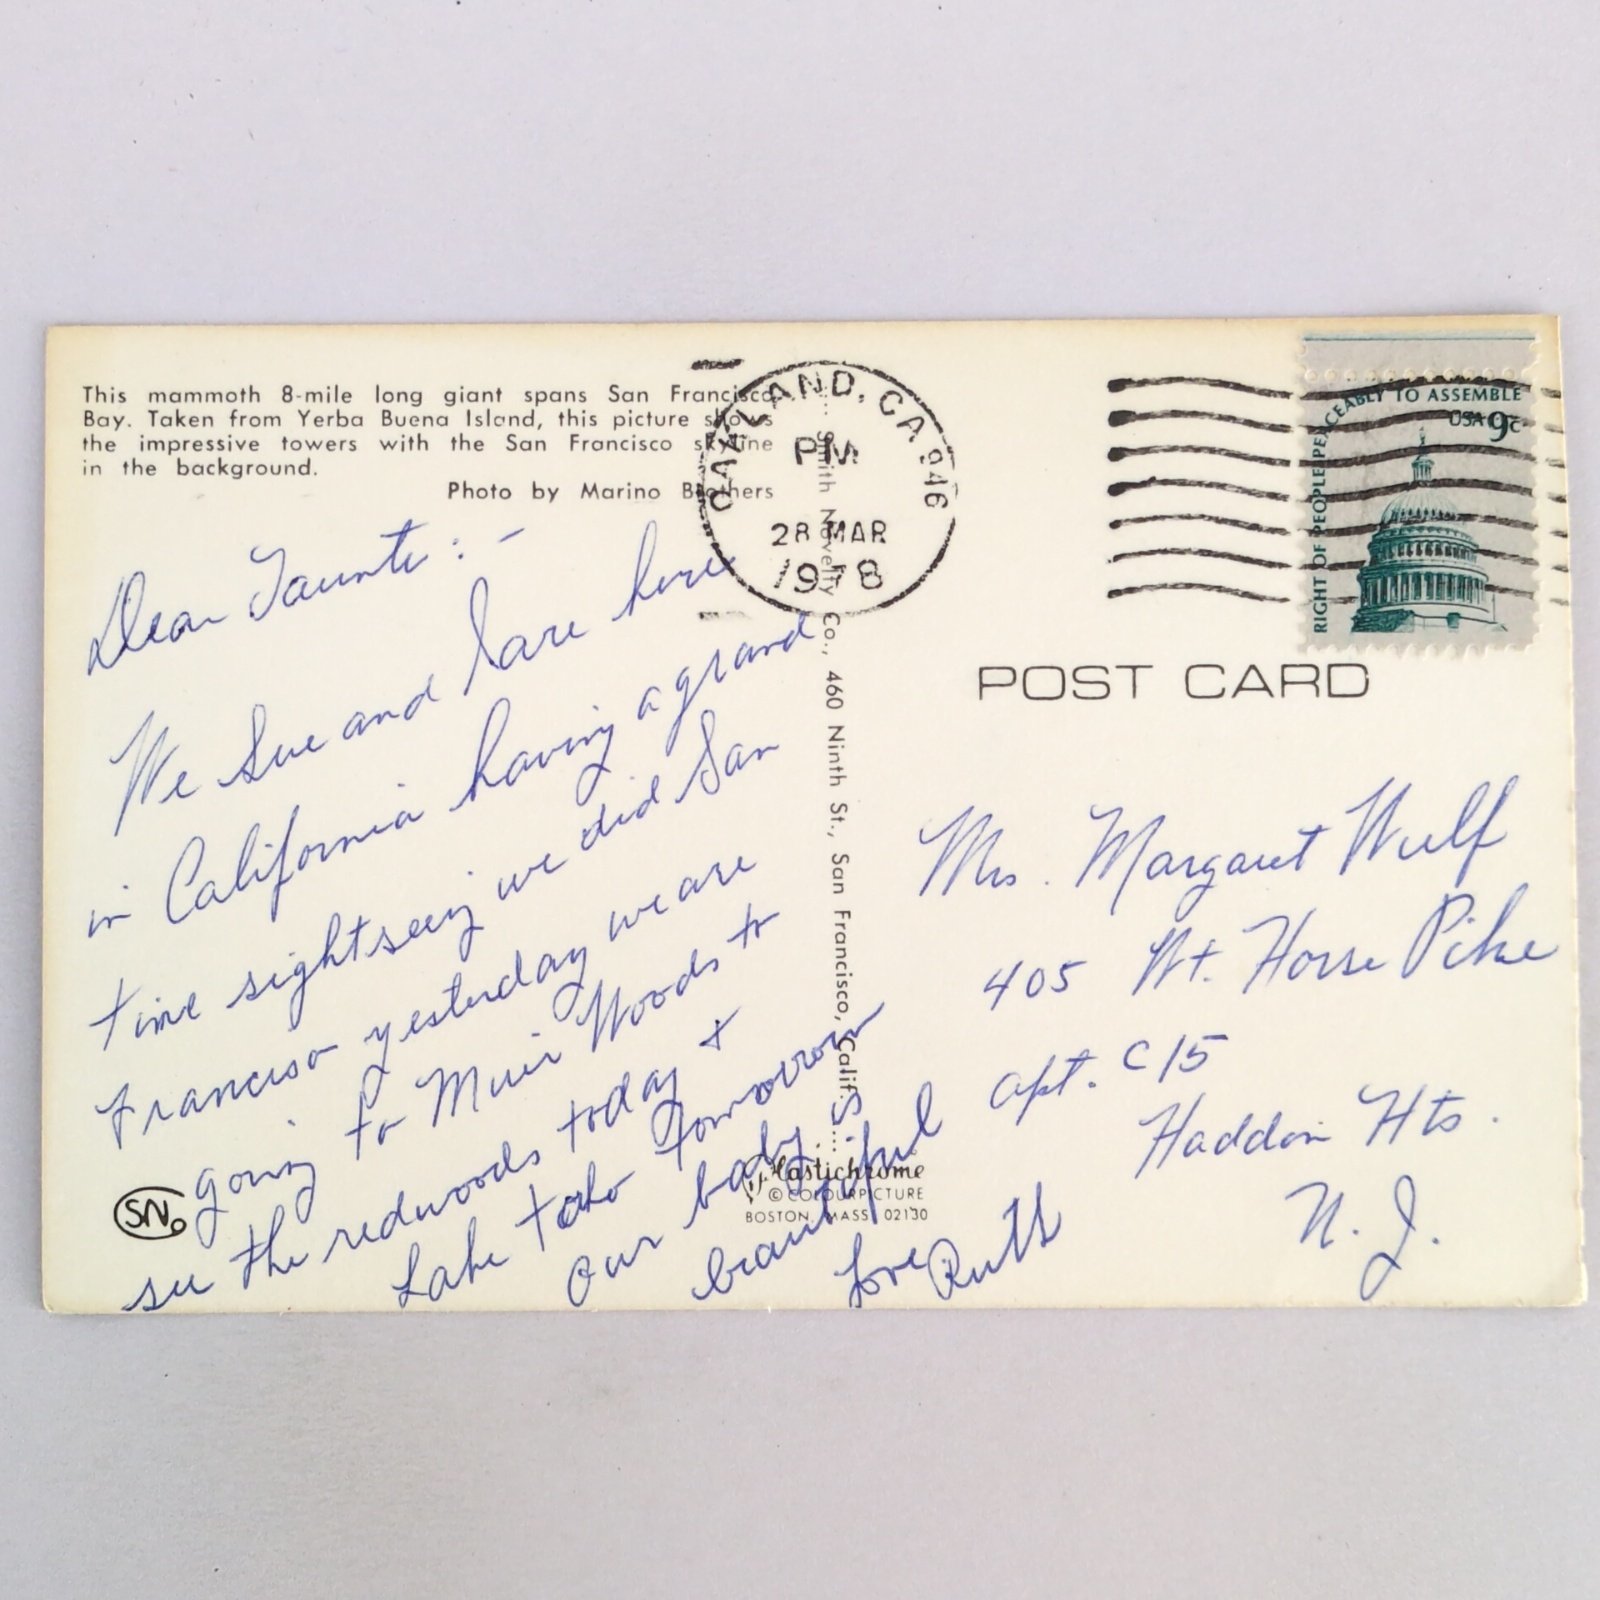 This mammoth 8-mile long giant spans San Francisco
Bay. Taken from Yerba Buena Island, this picture shows
the impressive towers with the San Francisco skyline
in the background.
Photo by Marino Brothers
Dear Taunte: -
We Sue and I are here
in California having a grand
time sightseeing we did San
Francisco yesterday we are
going to Muir Woods to
see the redwoods today &
Lake Taho tomorrow
our baby is
beautiful
Love Ruth
SNCo
Smith Novelty Co., 460 Ninth St., San Francisco, Calif.
Plastichrome
© COLOURPICTURE
BOSTON, MASS. 02130
OAKLAND, CA 946
PM
28 MAR
1978
RIGHT OF PEOPLE PEACEABLY TO ASSEMBLE
USA 9c
POST CARD
Mrs. Margaret Wulf
405 Wt. Horse Pike
Apt. C15
Haddon Hts.
N. J.